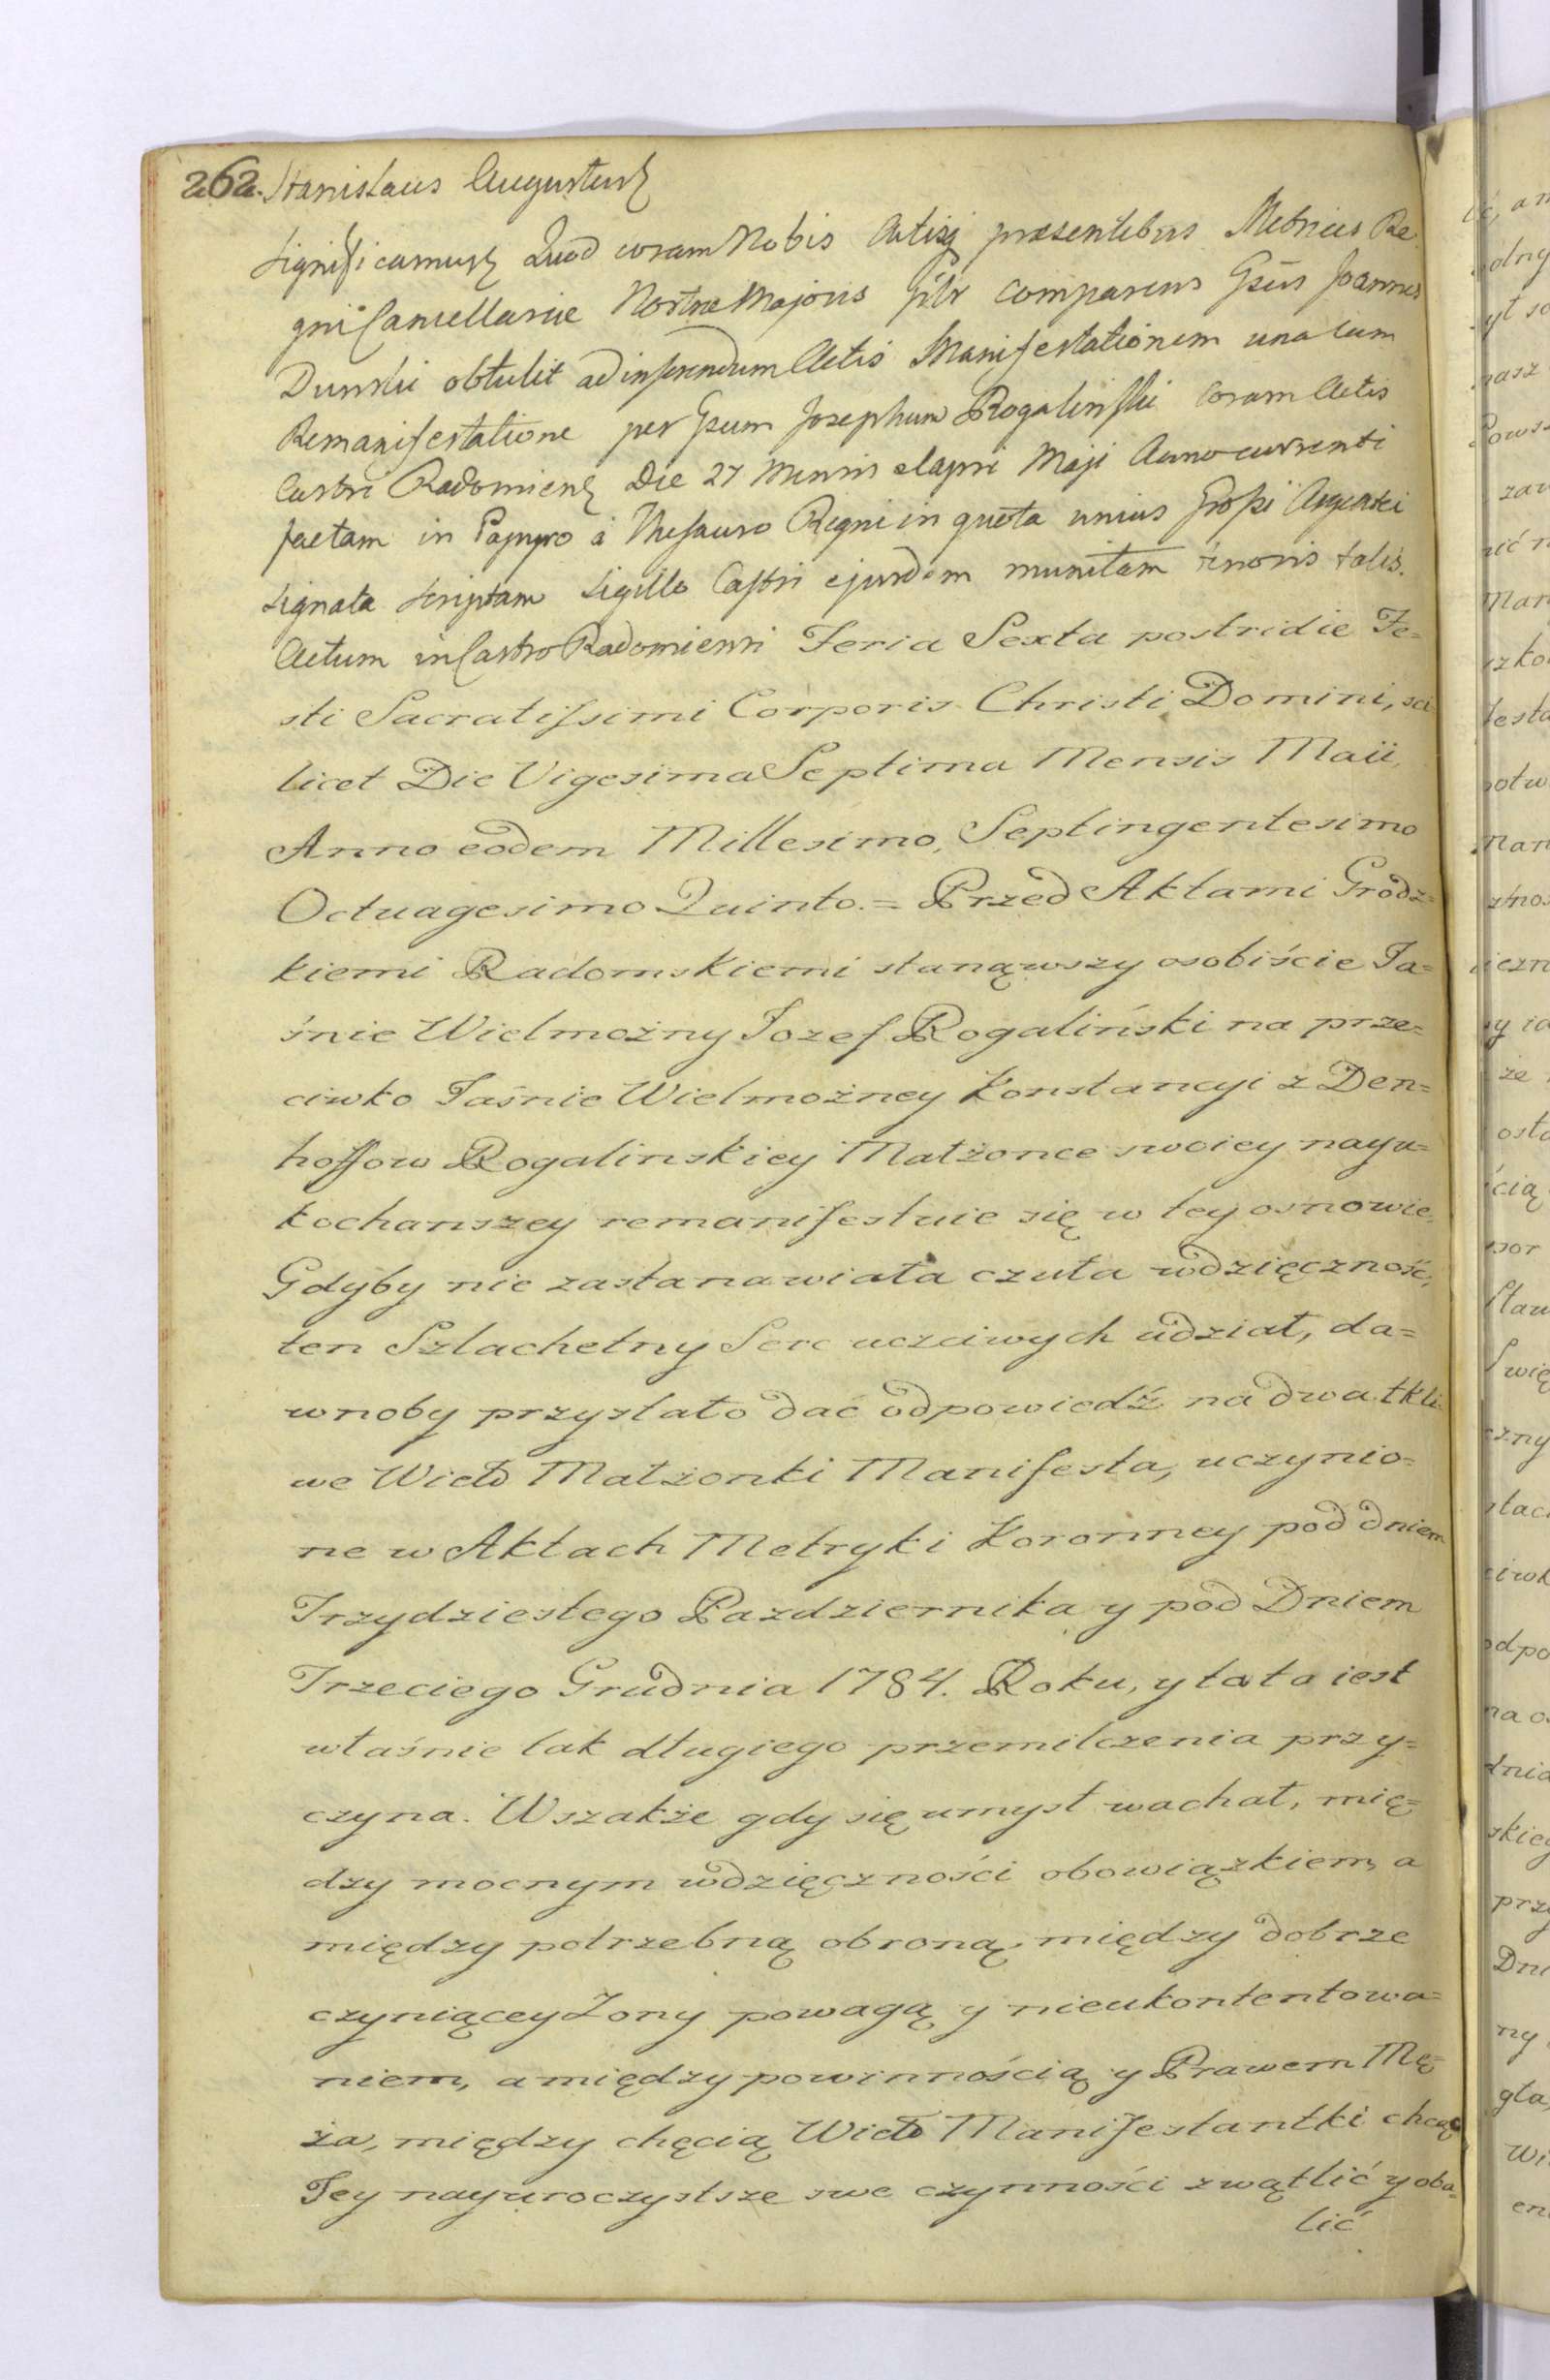 262. Stanislaus Augustus
Significamus Quod coram Nobis Actisq præsentibus Metrices Re
gni Cancellariæ Nostræ Majoris pltr comparens Gsus Joannes
Dunski obtulit ad inserendum Actis Manifestationem una cum
Remanifestatione per Gsum Josephum Rogaliński coram Actis
Castri Radomiens Die 27 Mensis elapsi Maji Anno currenti
factam in Papyro à Thesauro Regni in quota unius Grossi Argentei
signata scriptam Sigillo Castri ejusdem munitam tenoris talis.
Actum in Castro Radomiensi Feria Sexta postridie Fe=
sti Sacratissimi Corporis Christi Domini, sci
licet Die Vigesima Septima Mensis Maii,
Anno eodem Millesimo, Septingentesimo
Octuagesimo Quinto. = Przed Aktami Grodz=
kiemi Radomskiemi stanąwszy osobiście Ja=
śnie Wielmożny Jozef Rogaliński na prze=
ciwko Jaśnie Wielmożney Konstancyi z Den=
hoffow Rogalinskiey Małżonce swoiey nayu=
kochanszey remanifestuie się w tey osnowie,
Gdyby nie zastanawiała czuła wdzięczność,
ten Szlachetny Serc uczciwych udział, da=
wnoby przystało dać odpowiedź na dwa tkli=
we Małżonki Manifesta, uczynio=
ne w Aktach Metryki Koronney pod dniem
Trzydziestego Pazdziernika y pod Dniem
Trzeciego Grudnia 1784. Roku, y ta to iest
własnie tak długiego przemilczenia przy=
czyna. Wszakże gdy się umysł wachał, mię=
dzy mocnym wdzięczności obowiązkiem, a
między potrzebną obroną, między dobrze
czyniącey Zony powagą y nieukontentowa=
niem, a między powinnością y Prawem Mę=
ża, między chęcią Manifestantki chcąc
Jey nayuroczystsze swe czynności zwątlić y oba=
lić